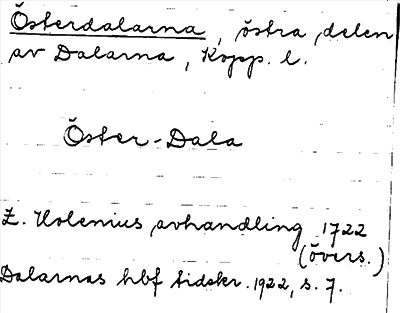 Österdalarna, östra delen
av Dalarna, Kopp. l.
Öster-Dala
E. Holenius avhandling 1722
(övers.)
Dalarnas hbf tidskr. 1922, s. 7.